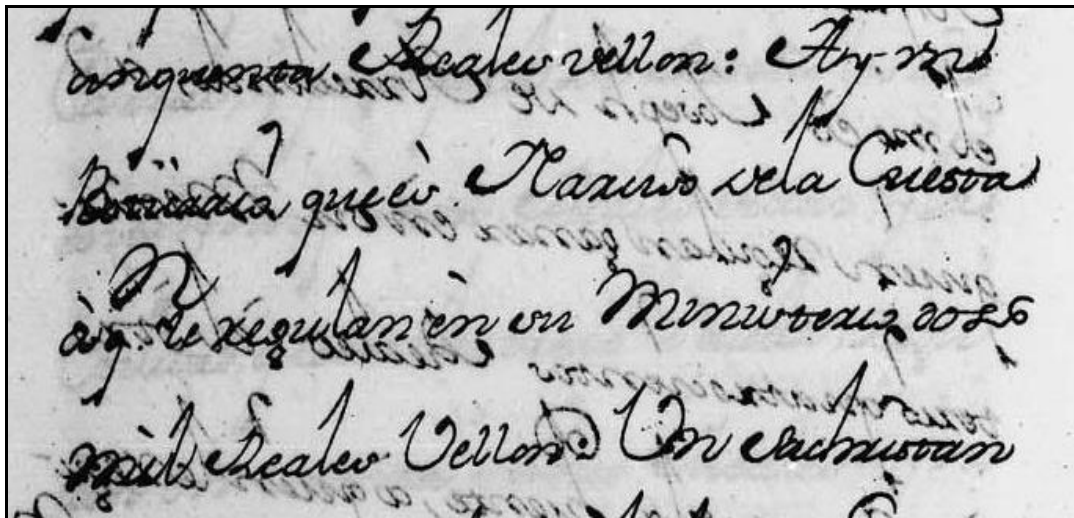 cinquenta Reales vellon: Ay un
Boticario que es Narciso de la Cuesta
à q.n se regulan èn su Ministerio dos
mil Reales Vellon: Un Sachristan